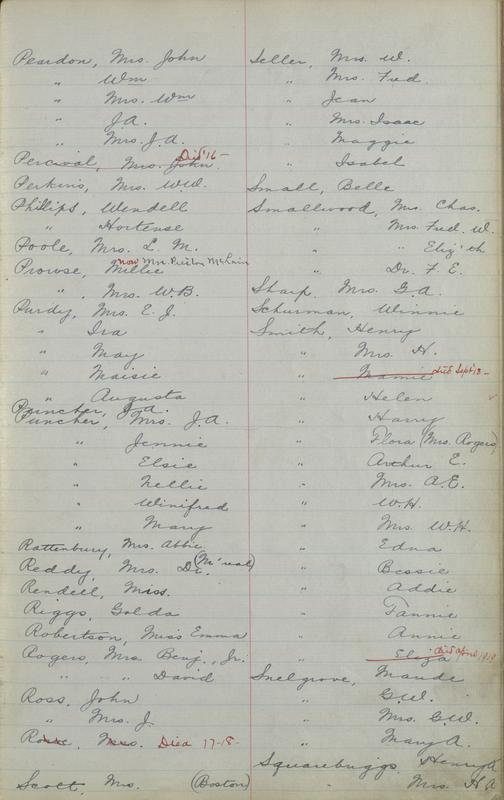 Peardon, Mrs. John
" Wm
" Mrs. Wm
" J.A.
" Mrs. J.A.
Percival, Mrs. John Died '16 -
Perkins, Mrs. W.W.
Phillips, Wendell
" Hortense
Poole, Mrs. L. M.
Prowse, Millie now Mrs. Preston McLain
" Mrs. W.B.
Purdy, Mrs. E. J.
" Ira
" May
" Maisie
" Augusta
Puncher, J.A.
Puncher, Mrs. J.A.
" Jennie
" Elsie
" Nellie
" Winifred
" Mary
Rattenbury, Mrs. Abbie
Reddy, Mrs. Dr. (M'real)
Rendell, Miss.
Riggs, Golda
Robertson, Miss Emma
Rogers, Mrs. Benj., Jr.
" " David
Ross, John
" Mrs. J.
Mrs. Died 17-18-
Scott, Mrs. (Boston)
Seller, Mrs. W.
" Mrs. Fred.
" Jean
" Mrs. Isaac
" Maggie
" Isabel
Small, Belle
Smallwood, Mrs. Chas.
" Mrs. Fred. W.
" " Eliz'th
" Dr. F. E.
Sharp, Mrs. G.A.
Schurman, Winnie
Smith, Henry
" Mrs. H.
" Mamie died Sept '18 -
" Helen
" Harry
" Flora (Mrs. Rogers)
" Arthur E.
" Mrs. A.E.
" W.H.
" Mrs. W.H.
" Edna
" Bessie
" Addie
" Fannie
" Annie
" Eliza died April 1919
Snelgrove, Maude
" G.W.
" Mrs. G.W.
" Mary A.
Squarebuggs, Henry A
" Mrs. H.A.